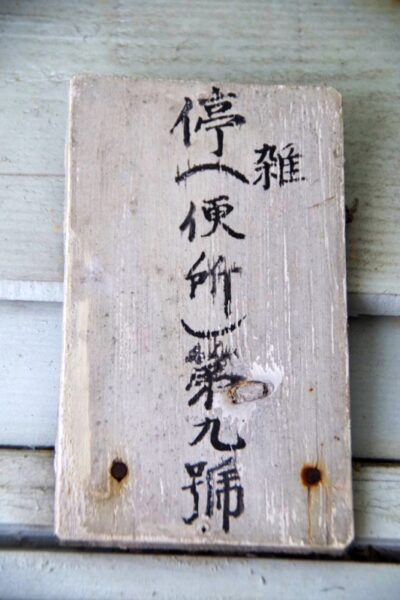 停(便所)第九號
雑